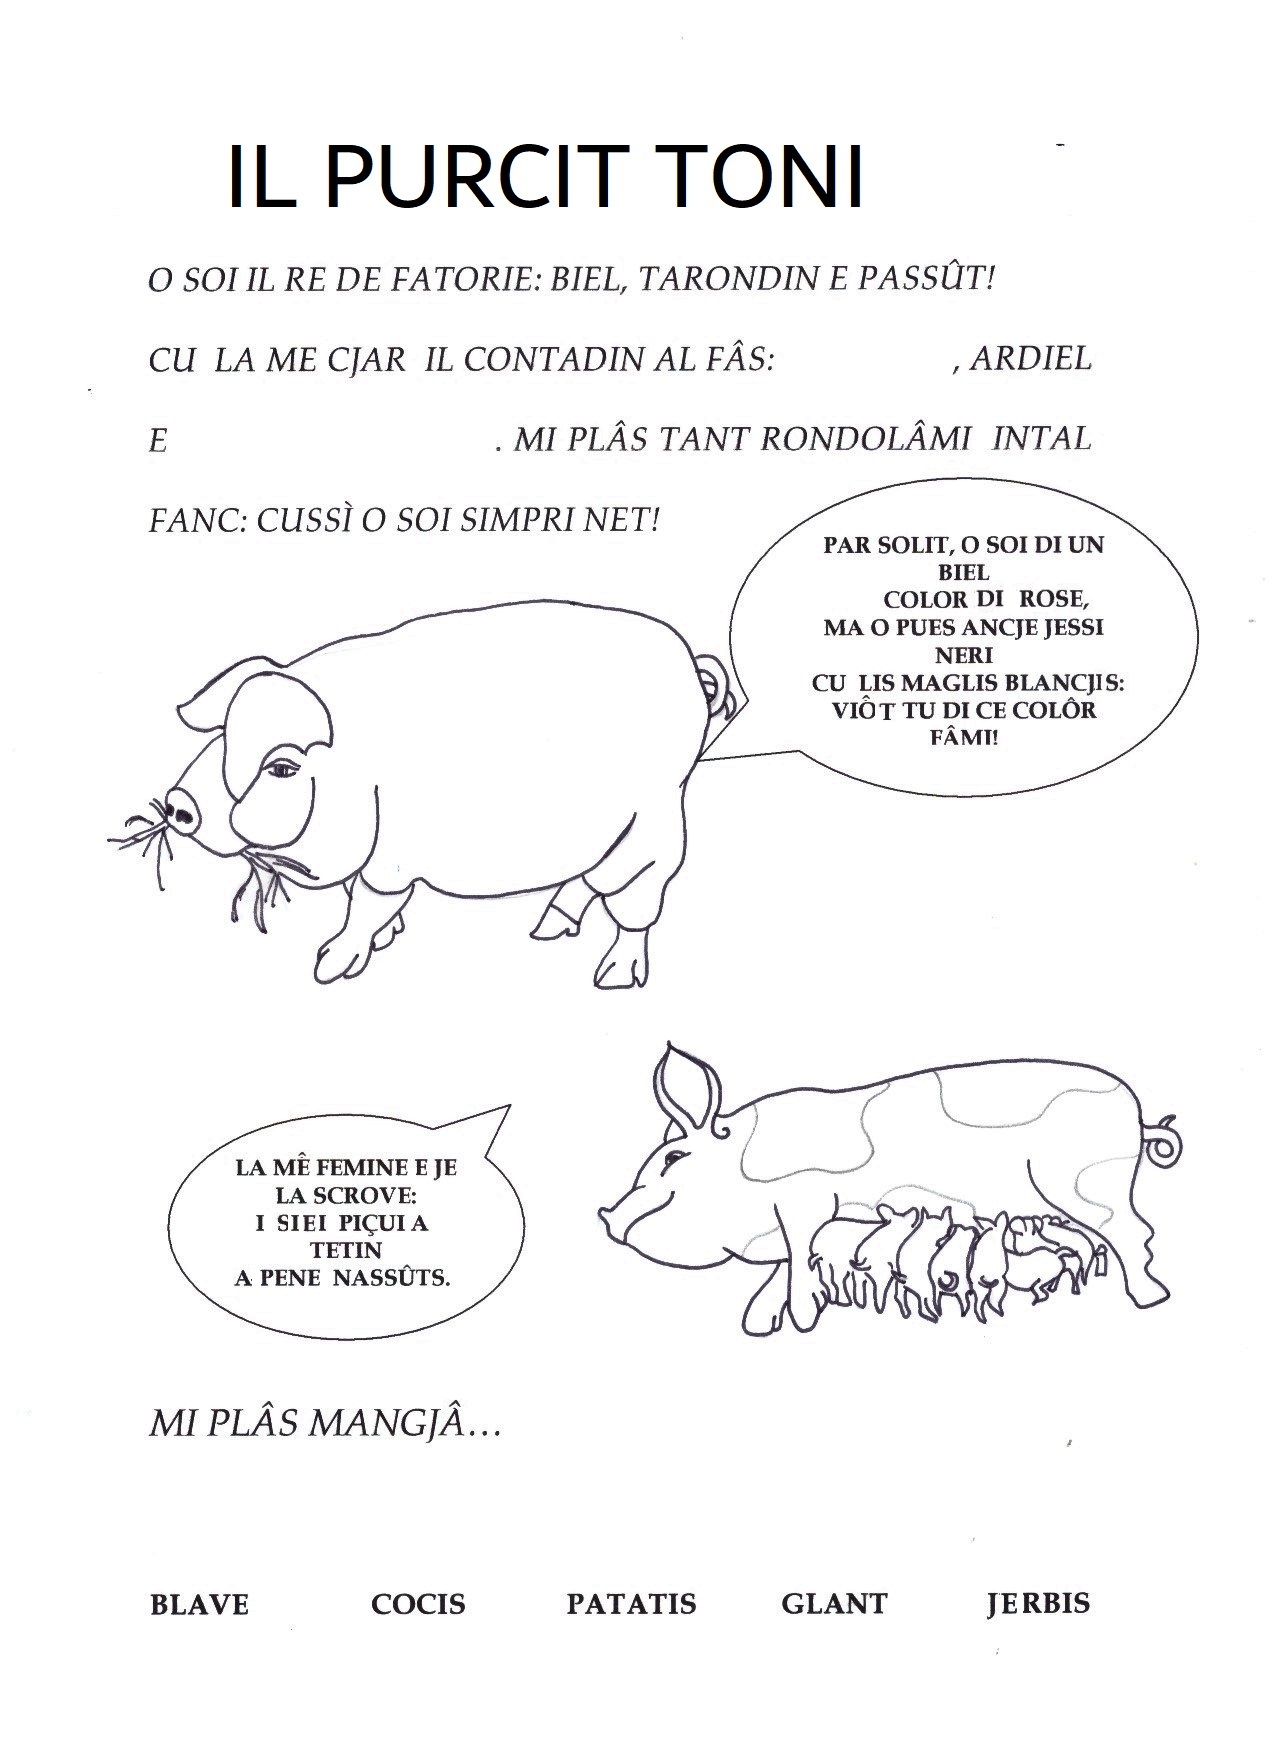 IL PURCIT TONI
O SOI IL RE DE FATORIE: BIEL, TARONDIN E PASSÛT!
CU LA ME CJAR IL CONTADIN AL FÂS: , ARDIEL
E . MI PLÂS TANT RONDOLÂMI INTAL
FANC: CUSSÌ O SOI SIMPRI NET!
PAR SOLIT, O SOI DI UN
BIEL
COLOR DI ROSE,
MA O PUES ANCJE JESSI
NERI
CU LIS MAGLIS BLANCJIS:
VIÔT TU DI CE COLÔR
FÂMI!
LA MÊ FEMINE E JE
LA SCROVE:
I SIEI PIÇUI A
TETIN
A PENE NASSÛTS.
MI PLÂS MANGJÂ...
BLAVE COCIS PATATIS GLANT JERBIS